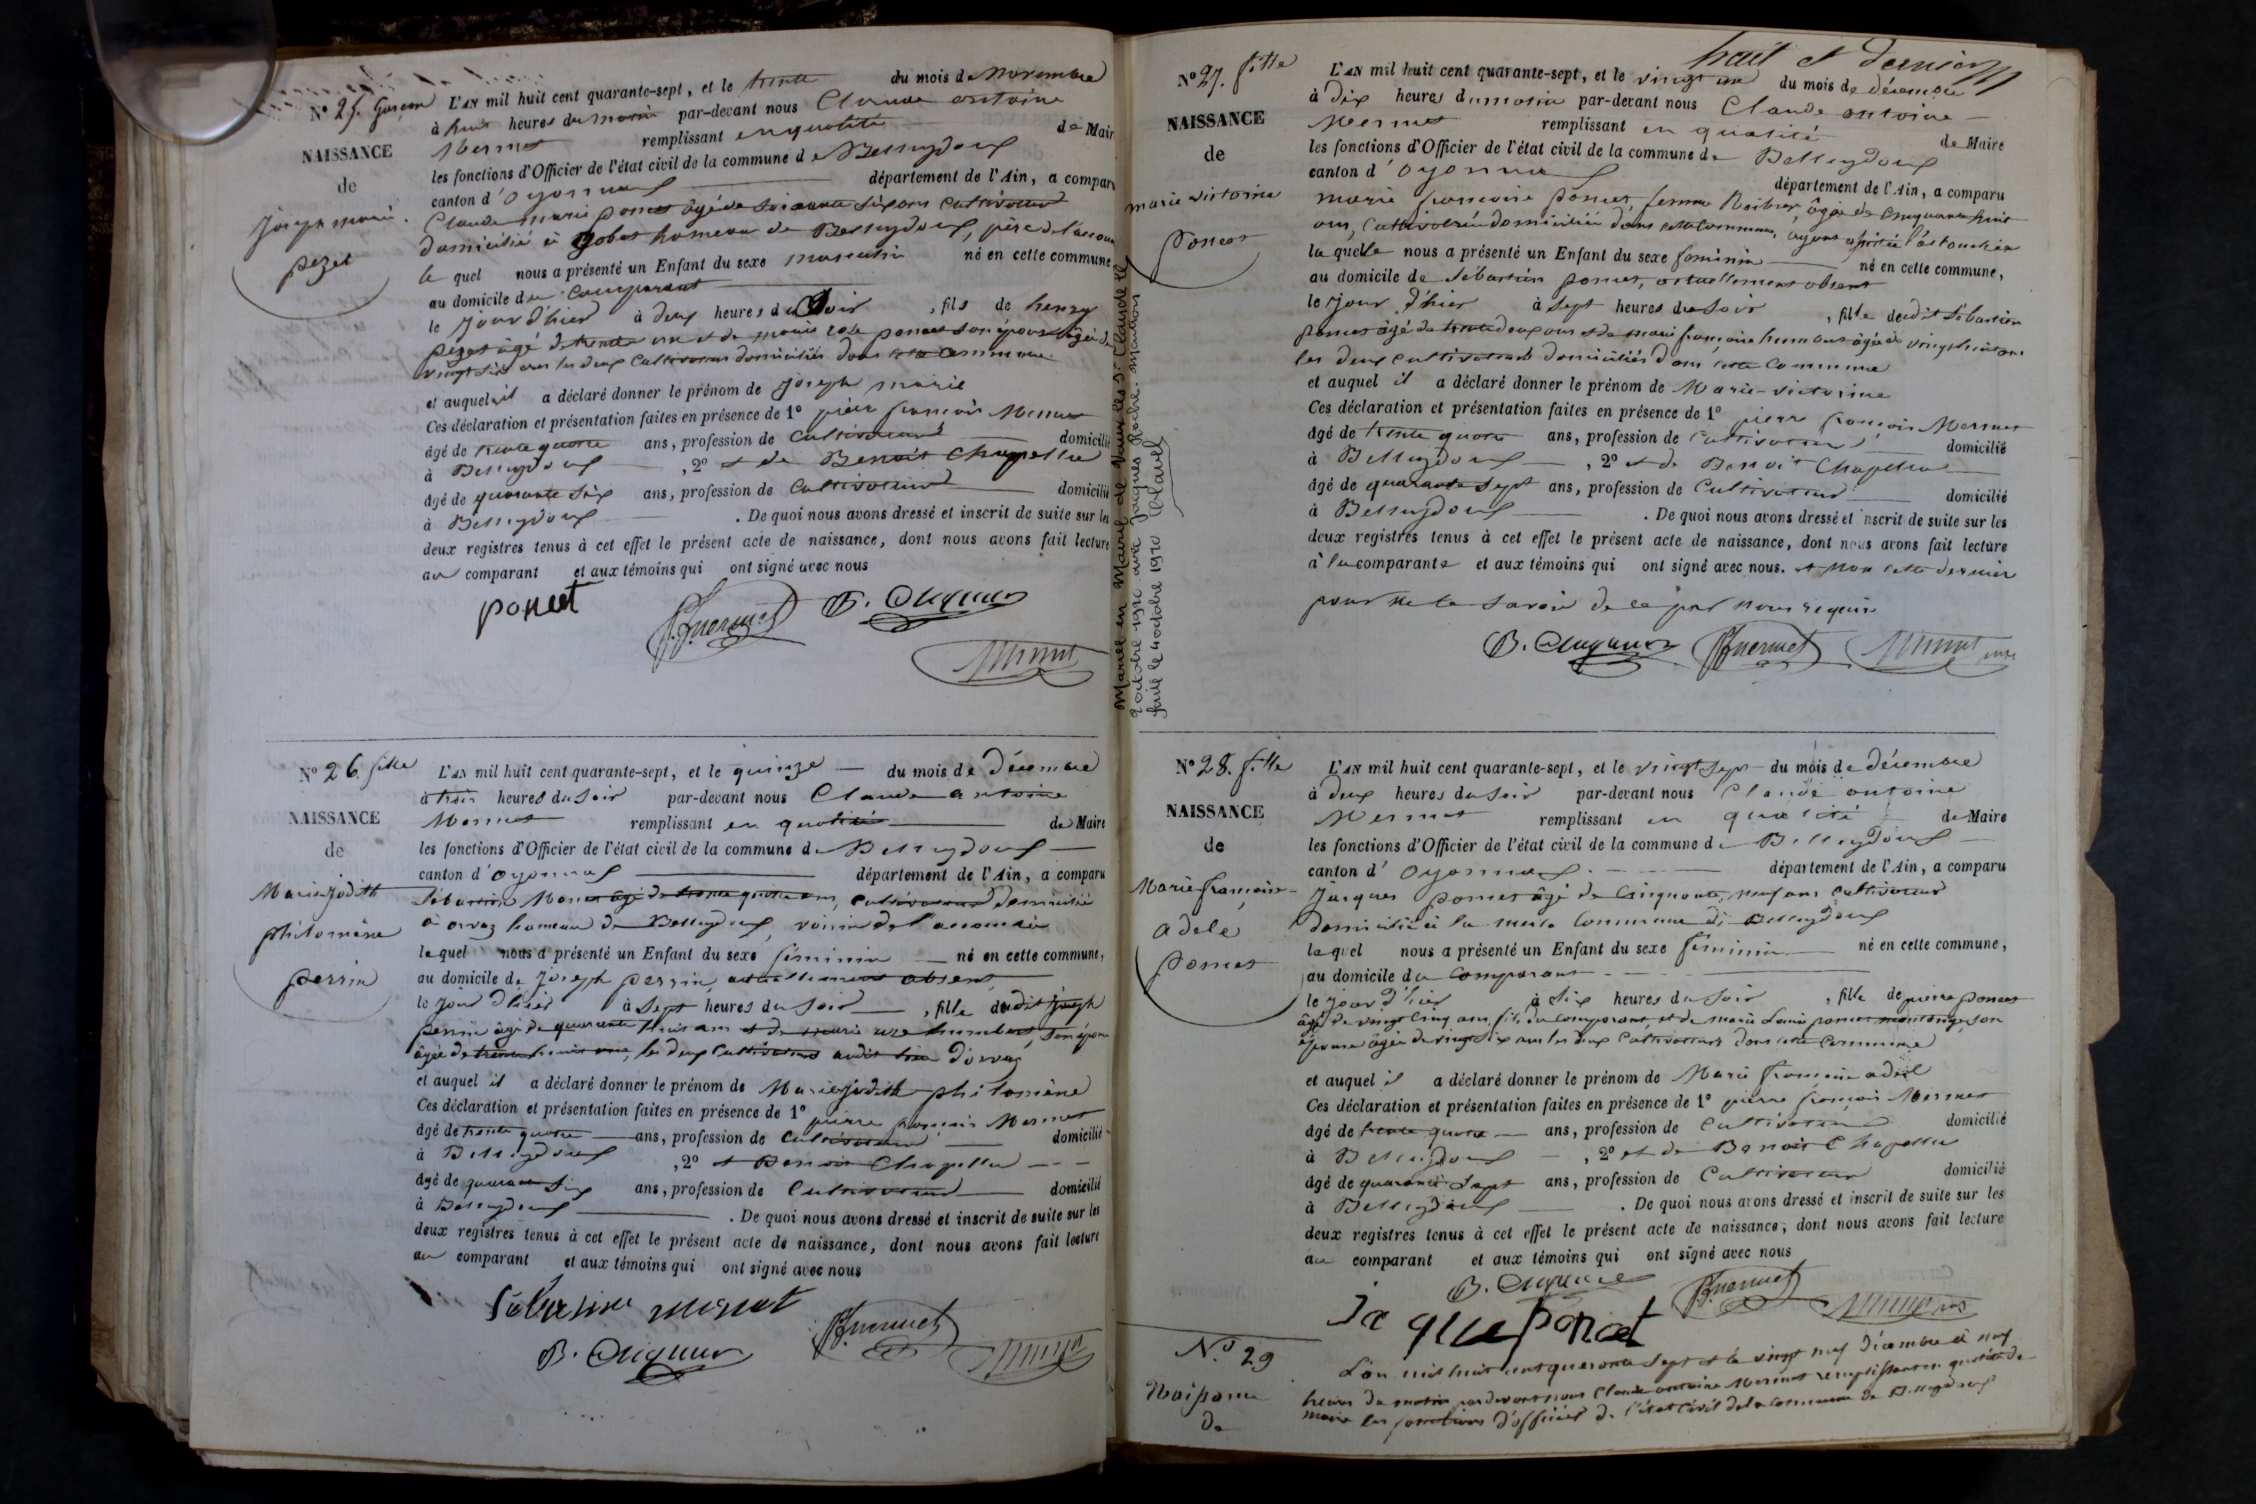 N° 25. Garçon
NAISSANCE
de
joseph marie
pezet
L'AN mil huit cent quarante-sept, et le trente du mois de Novembre
à huit heures du matin par-devant nous Claude antoine
Mermet remplissant en qualité de Maire
les fonctions d'Officier de l'état civil de la commune de Belleydoux
canton d'oyonnax département de l'Ain, a comparu
Claude marie poncet âgé de soixante six ans Cultivateur
domicilié à gobet hameau de Belleydoux, père de l'accou
le quel nous a présenté un Enfant du sexe masculin né en cette commune
au domicile du Comparant
le jour d'hier à deux heures du Soir, fils de henry
pezet âgé de trente un et de marie rose poncet son épouse âgée de
vingt six ans les deux Cultivateurs domiciliés dans cette commune
et auquel il a déclaré donner le prénom de joseph marie
Ces déclaration et présentation faites en présence de 1° pierre françois Mermet
âgé de trente quatre ans, profession de Cultivateur domicilié
à Belleydoux, 2° et de Benoit Chapellu
âgé de quarante six ans, profession de Cultivateur domicilié
à Belleydoux. De quoi nous avons dressé et inscrit de suite sur les
deux registres tenus à cet effet le présent acte de naissance, dont nous avons fait lecture
au comparant et aux témoins qui ont signé avec nous
poncet
Mermet
N° 26 fille
NAISSANCE
de
Marie judith
philomène
perrin
L'AN mil huit cent quarante-sept, et le quinze du mois de Décembre
à trois heures du Soir par-devant nous Claude antoine
Mermet remplissant en qualité de Maire
les fonctions d'Officier de l'état civil de la commune de Belleydoux
canton d'oyonnax département de l'Ain, a comparu
Sébastien Mermet âgé de trente quatre ans, cultivateur domicilié
à orvaz hameau de Belleydoux, voisin de l'accouchée
lequel nous a présenté un Enfant du sexe féminin né en cette commune,
au domicile de joseph perrin, actuellement absent,
le jour d'hier à Sept heures du Soir, fille dudit joseph
perrin âgé de quarante huit ans et de marie humbert, son épouse
âgée de trente huit ans, les deux Cultivateurs audit lieu d'orvaz
et auquel il a déclaré donner le prénom de Marie judith philomène
Ces déclaration et présentation faites en présence de 1° pierre françois Mermet
âgé de trente quatre ans, profession de Cultivateur domicilié
à Belleydoux, 2° et Benoit Chapellu
âgé de quarante six ans, profession de Cultivateur domicilié
à Belleydoux. De quoi nous avons dressé et inscrit de suite sur les
deux registres tenus à cet effet le présent acte de naissance, dont nous avons fait lecture
au comparant et aux témoins qui ont signé avec nous
Mermet
huit et dernier
N° 27. fille
NAISSANCE
de
marie victorine
Poncet
Mariée en Mairie de Vaux les St Claude le
2 octobre 1920 avec Jacques Roche. Mention
faite le 4 octobre 1920 Clavel
L'AN mil huit cent quarante-sept, et le vingt un du mois de décembre
à dix heures du matin par-devant nous Claude antoine
Mermet remplissant en qualité de Maire
les fonctions d'Officier de l'état civil de la commune de Belleydoux
canton d'oyonnax département de l'Ain, a comparu
marie françoise poncet, femme âgée de cinquante huit
ans, cultivatrice domiciliée dans cette commune, ayant assisté l'accouchée
laquelle nous a présenté un Enfant du sexe féminin né en cette commune,
au domicile de Sébastien poncet, actuellement absent
le jour d'hier à sept heures du soir, fille dudit Sébastien
poncet âgé de trente deux ans et de marie françoise âgée de vingt huit ans
les deux cultivateurs domiciliés dans cette commune
et auquel il a déclaré donner le prénom de Marie-victorine
Ces déclaration et présentation faites en présence de 1° pierre françois Mermet
âgé de trente quatre ans, profession de Cultivateur domicilié
à Belleydoux, 2° et de Benoit Chapellu
âgé de quarante sept ans, profession de Cultivateur domicilié
à Belleydoux. De quoi nous avons dressé et inscrit de suite sur les
deux registres tenus à cet effet le présent acte de naissance, dont nous avons fait lecture
à la comparante et aux témoins qui ont signé avec nous. et non cette dernier
pour ne le savoir de ce par nous requis
Mermet
N° 28. fille
NAISSANCE
de
Marie françoise
adele
Poncet
L'AN mil huit cent quarante-sept, et le vingt sept du mois de décembre
à deux heures du soir par-devant nous Claude antoine
Mermet remplissant en qualité de Maire
les fonctions d'Officier de l'état civil de la commune de Belleydoux
canton d'oyonnax département de l'Ain, a comparu
Jacques poncet âgé de cinquante neuf ans cultivateur
domicilié à la meme Commune de Belleydoux
lequel nous a présenté un Enfant du sexe féminin né en cette commune,
au domicile du comparant
le jour d'hier à Six heures du soir, fille de pierre poncet
âgé de vingt cinq ans, fils du comparant, et de marie Louise poncet son
épouse âgée de vingt six ans les deux Cultivateurs dans cette commune
et auquel il a déclaré donner le prénom de Marie françoise adele
Ces déclaration et présentation faites en présence de 1° pierre françois Mermet
âgé de trente quatre ans, profession de Cultivateur domicilié
à Belleydoux, 2° et de Benoit Chapellu
âgé de quarante Sept ans, profession de Cultivateur domicilié
à Belleydoux. De quoi nous avons dressé et inscrit de suite sur les
deux registres tenus à cet effet le présent acte de naissance, dont nous avons fait lecture
au comparant et aux témoins qui ont signé avec nous
Jaque poncet
N° 29
Naissance
de
L'an mil huit cent quarante sept et le vingt neuf décembre à neuf
heures du matin par devant nous Claude antoine Mermet remplissant en qualité de
maire les fonctions d'officier de l'état civil de la commune de Belleydoux